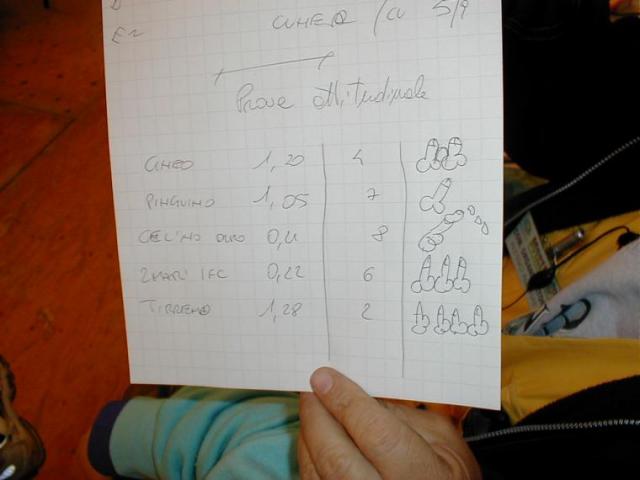 CUNEO /CU 5/9
Prove attitudinale
CUNEO 1,20 4
PINGUINO 1,05 7
CELINO DURO 0,11 8
2MARI IFC 0,22 6
TIRRENO 1,28 2